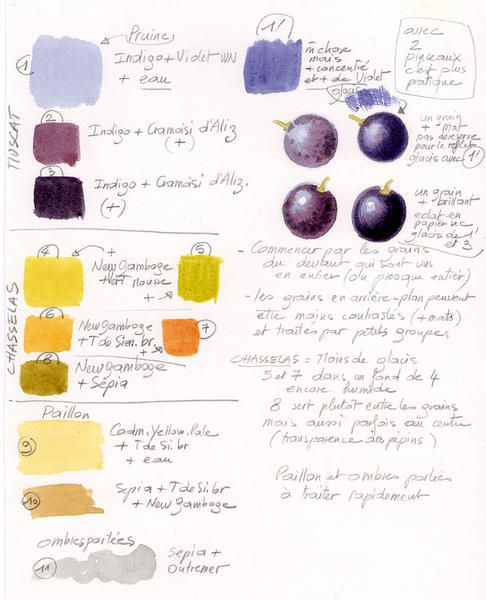 Pruine
1
Indigo + Violet WN
+ eau
MUSCAT
2
Indigo + Cramoisi d'Aliz
(+)
3
Indigo + Cramoisi d'Aliz.
(+)
1'
m chose
mais
+ concentré
et + de Violet
glacis
avec
2
pinceaux
c'est plus
pratique
un grain
+ mat
pas de réserve
pour le reflet
glacis avec 1'
un grain
+ brillant
éclat en
papier sec
glacis de 1'
et 3
CHASSELAS
4
+
New Gamboge
+ Vert Mousse
+
5
6
New Gamboge
+ T de Sien. br.
+
7
8
New Gamboge
+ Sépia
Paillon
9
Cadm. Yellow. Pale
+ T de Si. br
+ eau
10
Sepia + T de Si. br
+ New Gamboge
Ombres portées
11
Sepia +
Outremer
- Commencer par les grains
du devant qui sont vus
en entier (ou presque entier)
- les grains en arrière-plan peuvent
être moins contrastés (+ mats)
et traités par petits groupes
CHASSELAS : Moins de glacis
5 et 7 dans un fond de 4
encore humide
8 sert plutôt entre les grains
mais aussi parfois au centre
(transparence des pépins)
Paillon et ombres portées
à traiter rapidement